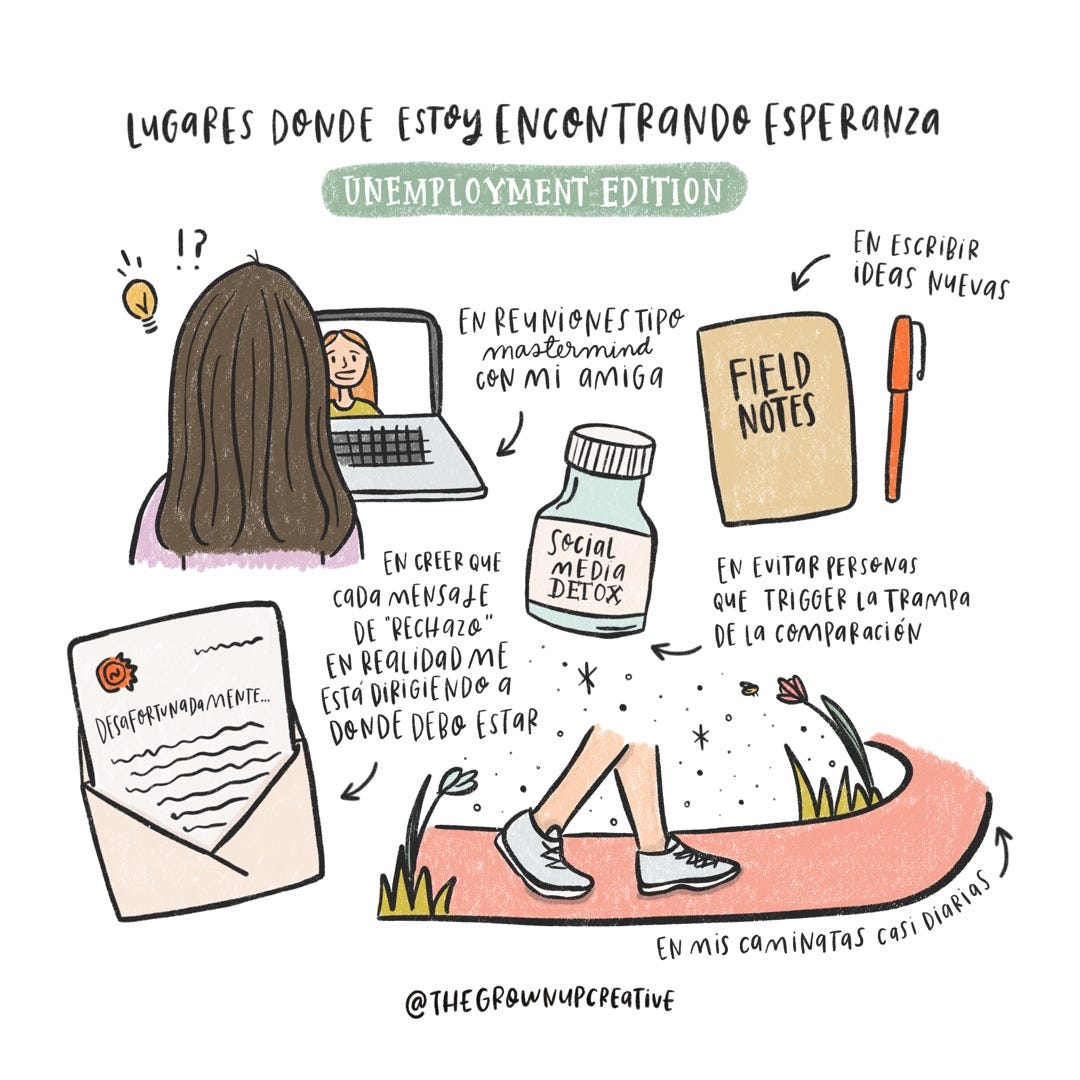 LUGARES DONDE ESTOY ENCONTRANDO ESPERANZA
UNEMPLOYMENT EDITION
!?
EN REUNIONES TIPO
mastermind
CON MI AMIGA
EN ESCRIBIR
IDEAS NUEVAS
FIELD
NOTES
SOCIAL
MEDIA
DETOX
EN EVITAR PERSONAS
QUE TRIGGER LA TRAMPA
DE LA COMPARACIÓN
EN CREER QUE
CADA MENSAJE
DE "RECHAZO"
EN REALIDAD ME
ESTÁ DIRIGIENDO A
DONDE DEBO ESTAR
DESAFORTUNADAMENTE...
EN MIS CAMINATAS CASI DIARIAS
@THEGROWNUPCREATIVE